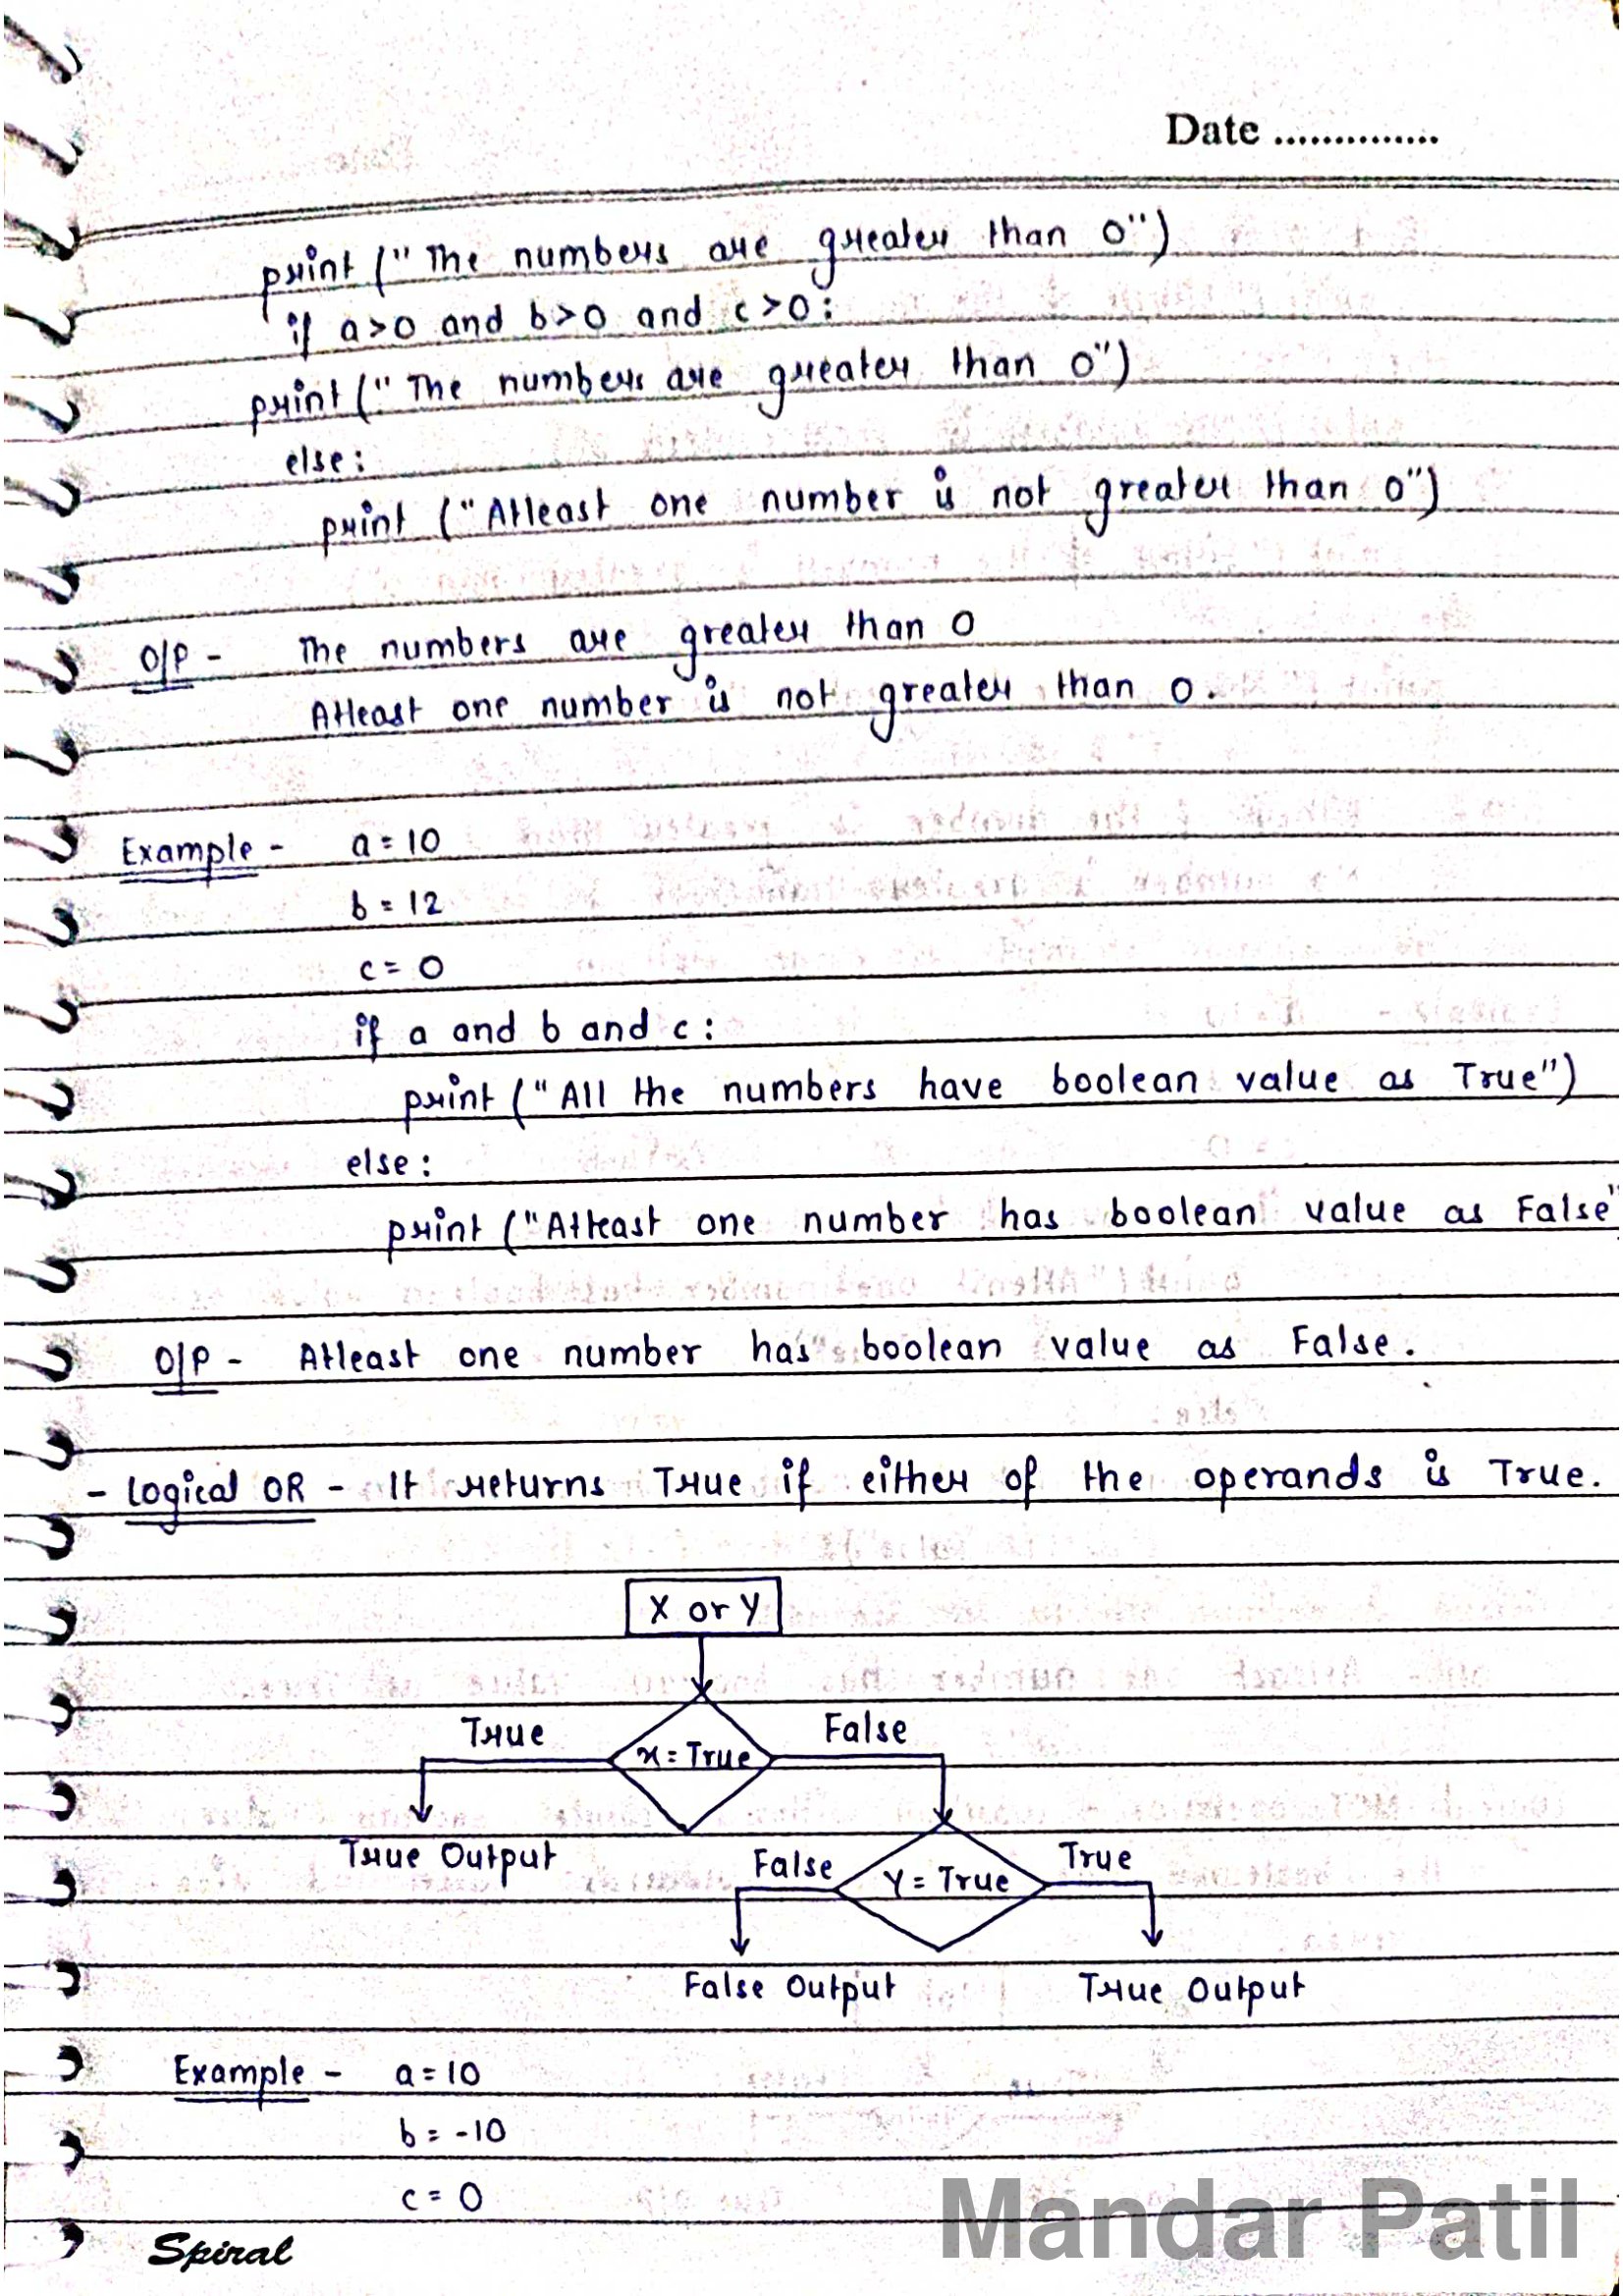 Date ..............
print ("The numbers are greater than 0")
if a>0 and b>0 and c>0:
print ("The numbers are greater than 0")
else:
print ("Atleast one number is not greater than 0")
O/P - The numbers are greater than 0
Atleast one number is not greater than 0.
Example - a = 10
b = 12
c = 0
if a and b and c:
print ("All the numbers have boolean value as True")
else:
print ("Atleast one number has boolean value as False"
O/P - Atleast one number has boolean value as False.
- Logical OR - It returns True if either of the operands is True.
X or Y
True
False
x = True
True Output
False
True
Y = True
False Output
True Output
Example - a = 10
b = -10
c = 0
Spiral
Mandar Patil